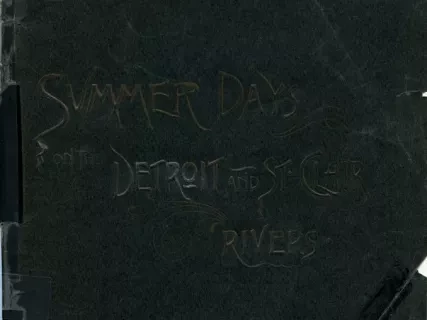 SUMMER DAYS
ON THE
DETROIT AND ST. CLAIR
RIVERS